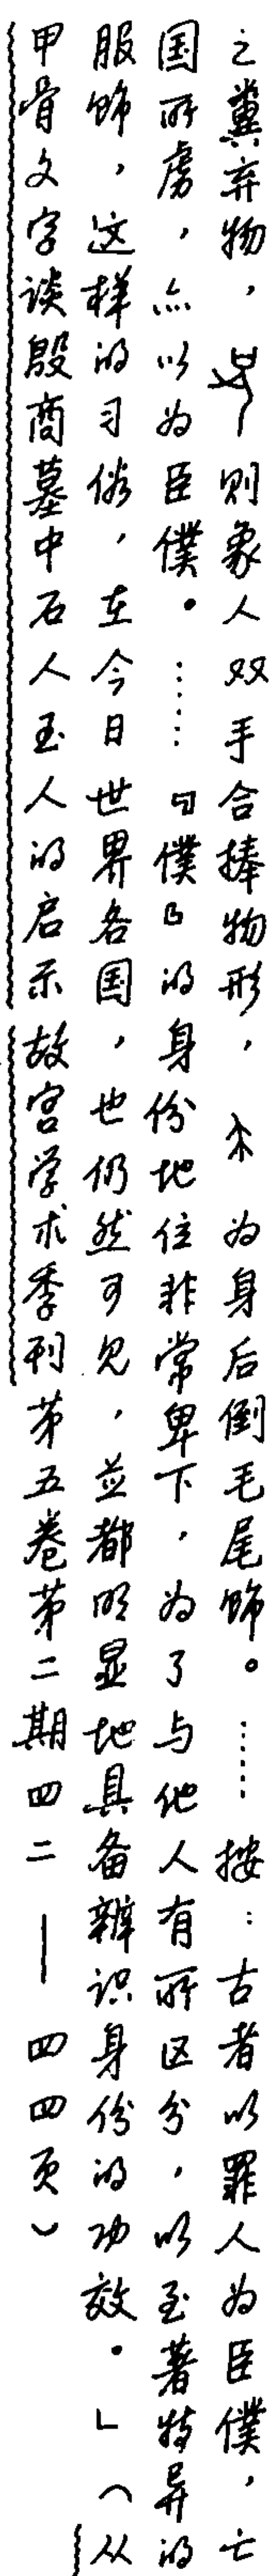 之糞弃物，则象人双手合捧物形，为身后倒毛尾饰。……按：古者以罪人为臣僕，亡
国所虏，亦以为臣僕。……『僕』的身份地位非常卑下，为了与他人有所区分，以至著特异的
服饰，这样的习俗，在今日世界各国，也仍然可见，並都明显地具备辨识身份的功效。」（从
甲骨文字谈殷商墓中石人玉人的启示故宫学术季刊第五卷第二期四二——四四页）